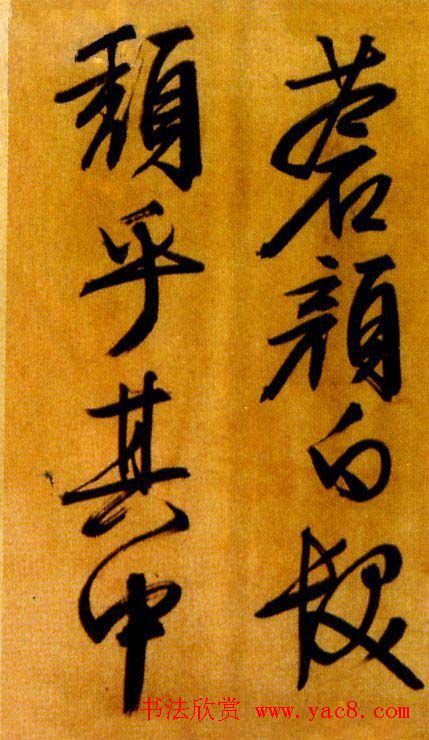 蒼顏白髮
頹乎其中
书法欣赏 www.yac8.com